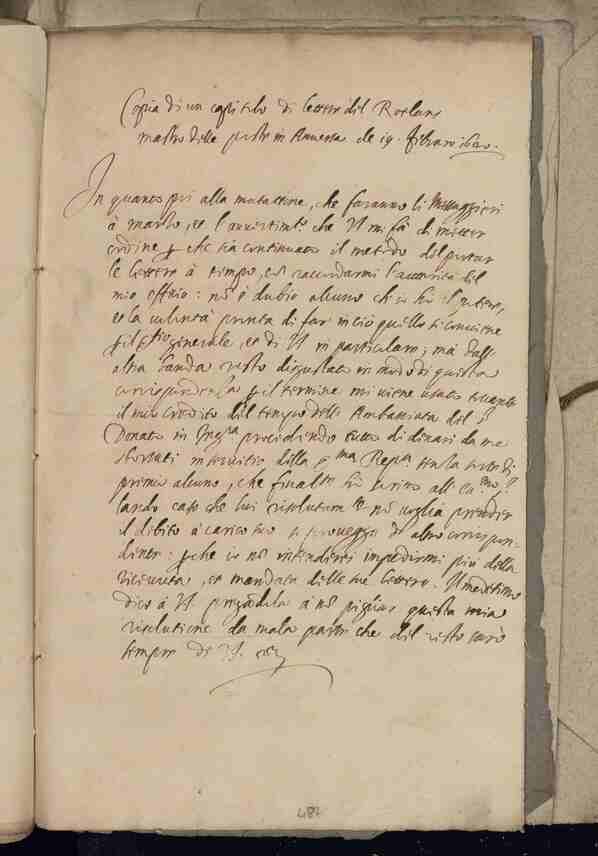 Copia di un capitolo di lettere del Roelans
mastro delle poste in Anversa de 19. febraro 1620.
In quanto poi alla mutattione, che faranno li Messaggieri
à Marzo, et l'avvertimto che VS mi fà di metter
ordine che sia continuato il metodo del portar
le lettere à tempo, et raccordarmi l'autorità del
mio offitio: nō è dubio alcuno ch'io hò il potere,
et la volontà pronta di far in ciò quello si conviene
generale, et di VS in particolare; mà dall'
altra banda resto disgustato in modo di questa
corrispondenza il termine mi viene usato toccante
il mio credito del tempo dell' Ambasciata del
Donato in Ingra procedendo tutto di dinari da me
sborsati in servitio della sma Repca senza
primio alcuno, che finalte hò scritto all
lando caso che lui risolutamte nō voglia prender
il debito à carico suo si proveggi di altro corrispon-
dente: che io nō intenderei impedirmi più della
ricevuta, et mandata delle sue lettere. Il medesimo
dico à VS pregādola à nō pigliar questa mia
risolutione da mala parte che del resto sarò
sempre di VS. etc
487